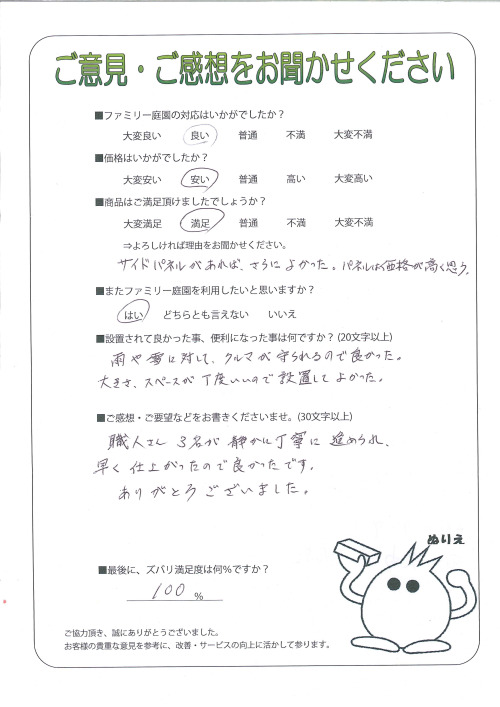 ご意見・ご感想をお聞かせください
■ファミリー庭園の対応はいかがでしたか？
大変良い 良い 普通 不満 大変不満
■価格はいかがでしたか？
大変安い 安い 普通 高い 大変高い
■商品はご満足頂けましたでしょうか？
大変満足 満足 普通 不満 大変不満
⇒よろしければ理由をお聞かせください。
サイドパネルがあれば、さらによかった。パネルは価格が高く思う。
■またファミリー庭園を利用したいと思いますか？
はい どちらとも言えない いいえ
■設置されて良かった事、便利になった事は何ですか？(20文字以上)
雨や雪に対して、クルマが守られるので良かった。
大きさ、スペースが丁度いいので設置してよかった。
■ご感想・ご要望などをお書きくださいませ。(30文字以上)
職人さん3名が静かに丁寧に進められ、
早く仕上がったので良かったです。
ありがとうございました。
ぬりえ
■最後に、ズバリ満足度は何％ですか？
100 %
ご協力頂き、誠にありがとうございました。
お客様の貴重な意見を参考に、改善・サービスの向上に活かして参ります。